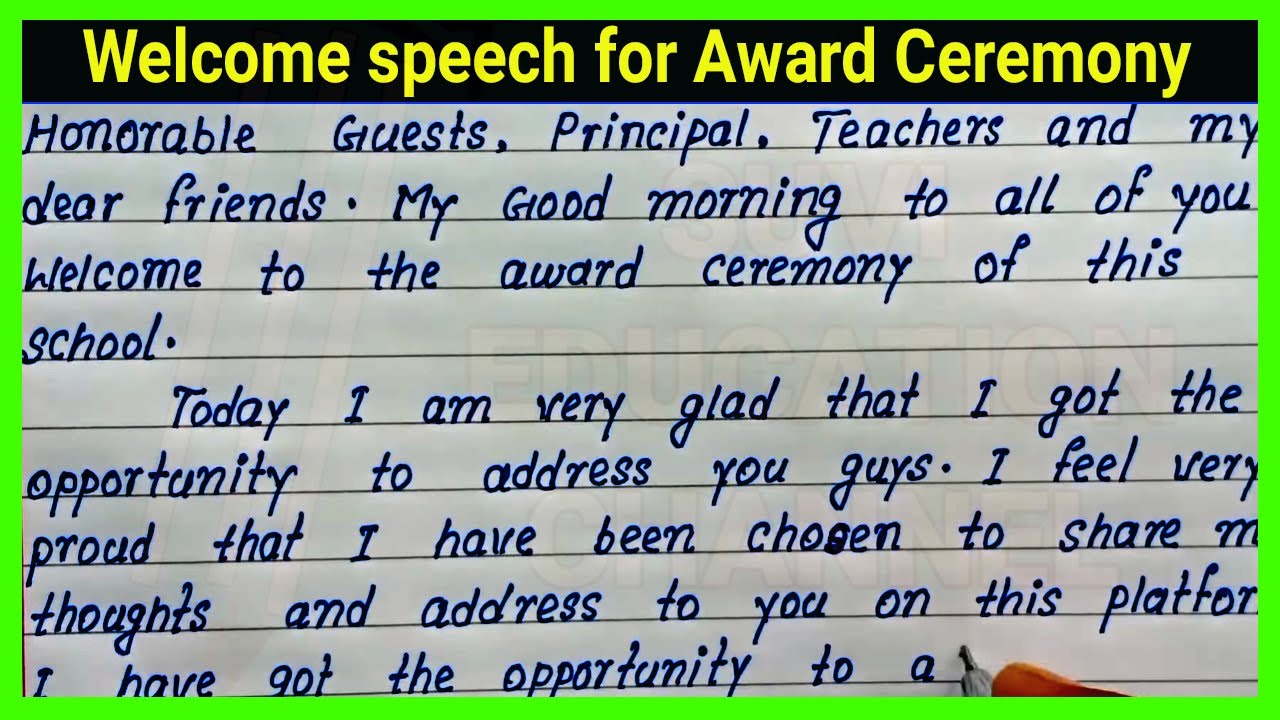 Welcome speech for Award Ceremony
Honorable Guests, Principal, Teachers and my
dear friends. My Good morning to all of you
Welcome to the award ceremony of this
school.
Today I am very glad that I got the
opportunity to address you guys. I feel very
proud that I have been chosen to share m
thoughts and address to you on this platfor
I have got the opportunity to a
SUVI
EDUCATION
CHANNEL